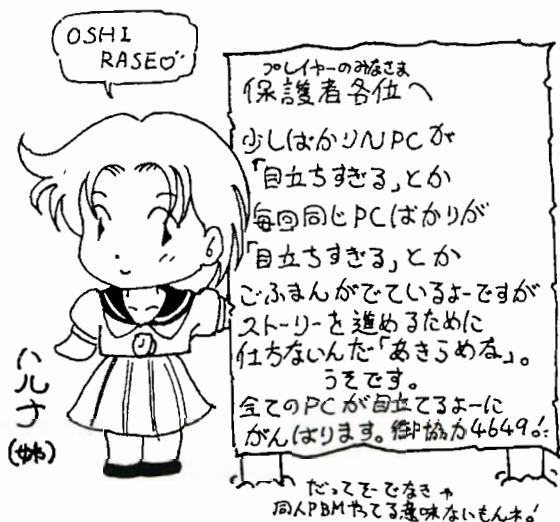 OSHI
RASE♡
プレイヤーのみなさま
保護者各位へ
少しばかりNPCが
「目立ちすぎる」とか
毎回同じPCばかりが
「目立ちすぎる」とか
ごふまんがでているよーですが
ストーリーを進めるために
仕ちないんだ「あきらめな」。
うそです。
全てのPCが目立てるよーに
がんばります。御協力4649!
ハルナ
(姉)
だってそーでなきゃ
同人PBMやってる意味ないもんネ!